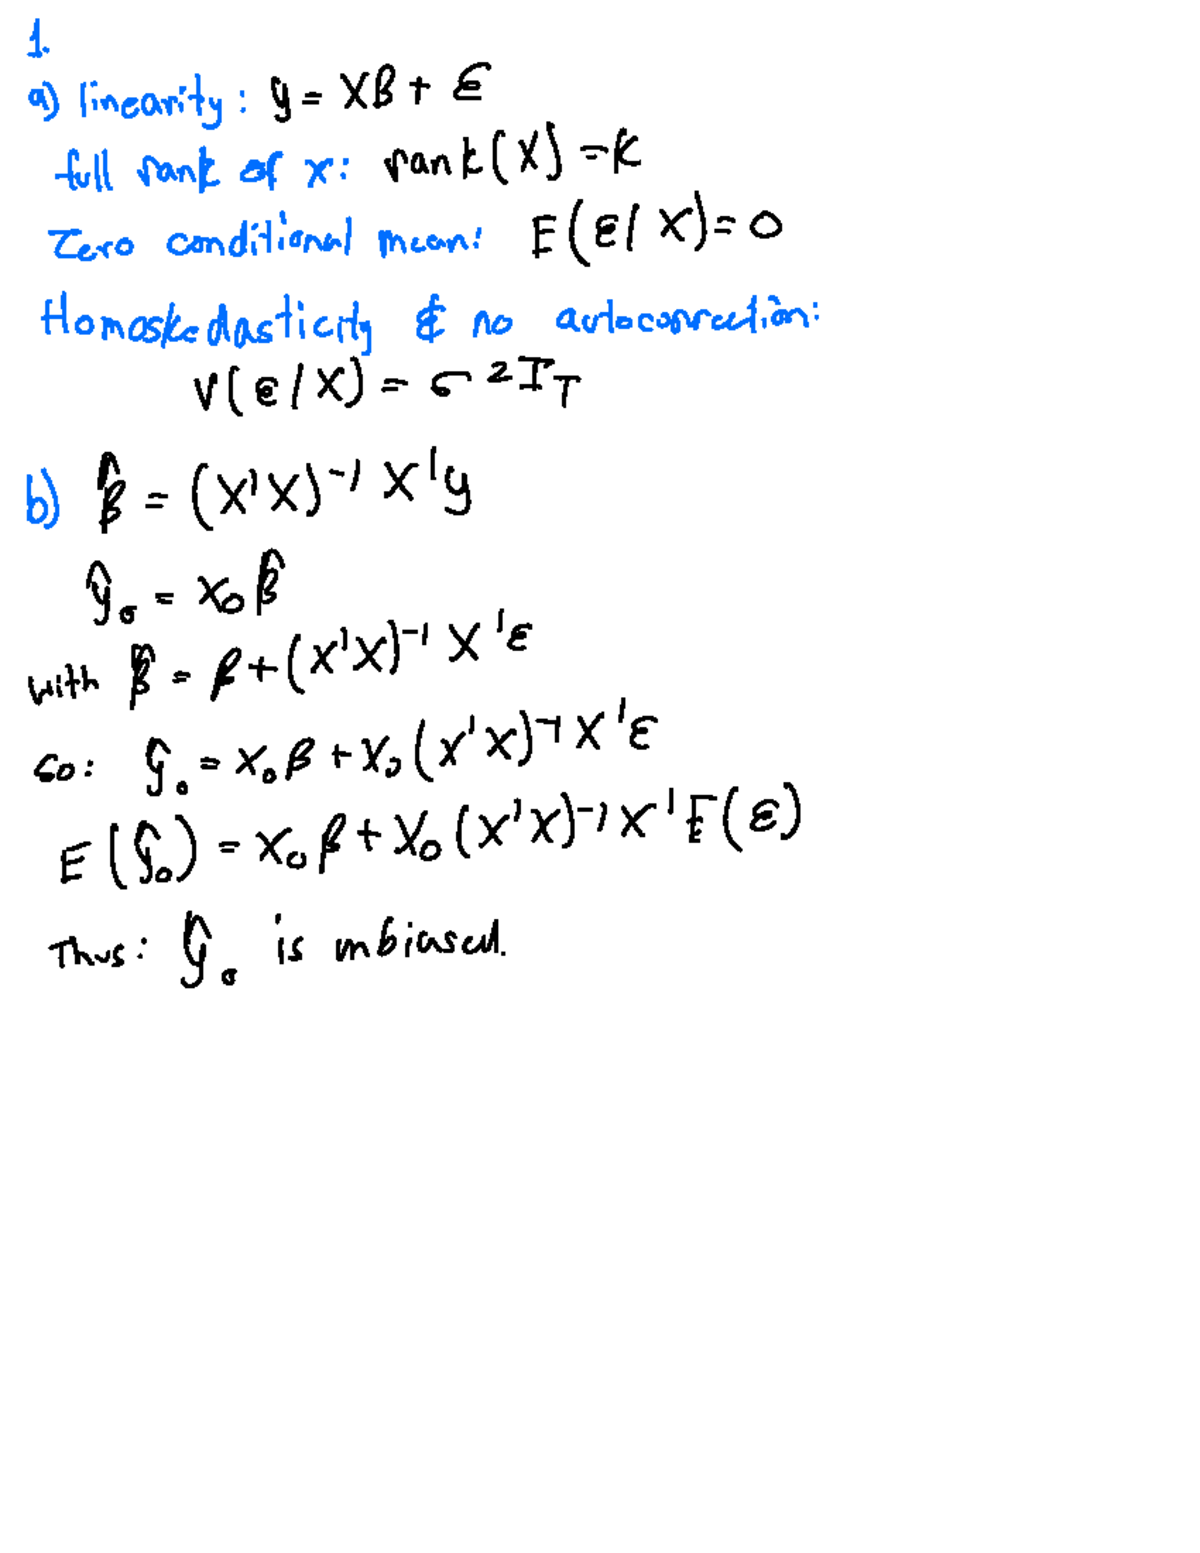 1.
a) linearity: y = Xβ + ε
full rank of x: rank(X) = K
Zero conditional mean: E(ε/X) = 0
Homoskedasticity & no autocorrection:
V(ε/X) = σ²I_T
b) β̂ = (X'X)⁻¹ X'y
ŷ₀ = x₀β̂
with β̂ = β + (X'X)⁻¹ X'ε
So: ŷ₀ = X₀β + X₀(X'X)⁻¹X'ε
E(ŷ₀) = X₀β + X₀(X'X)⁻¹X'E(ε)
Thus: ŷ₀ is unbiased.